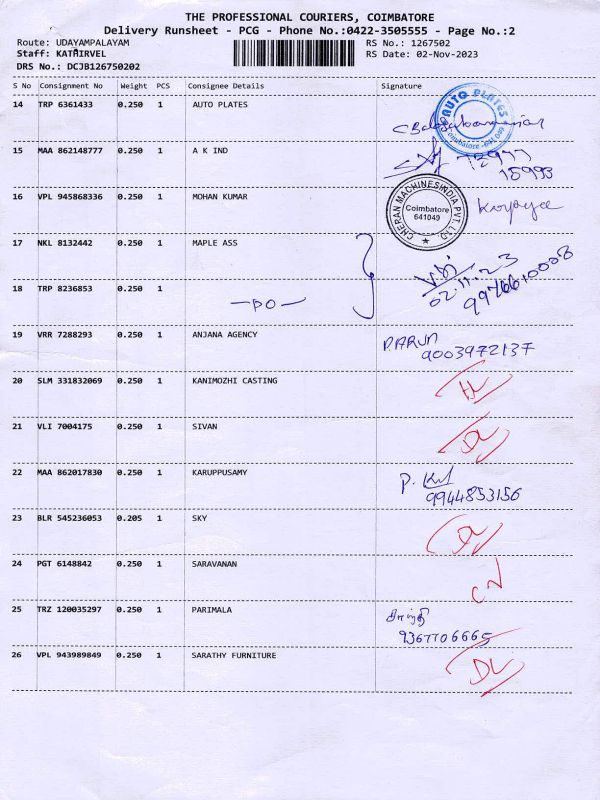 THE PROFESSIONAL COURIERS, COIMBATORE
Delivery Runsheet - PCG - Phone No.:0422-3505555 - Page No.:2
Route: UDAYAMPALAYAM RS No.: 1267502
Staff: KATHIRVEL RS Date: 02-Nov-2023
DRS No.: DCJB126750202
S No Consignment No Weight PCS Consignee Details Signature
14 TRP 6361433 0.250 1 AUTO PLATES
AUTO PLATES
Coimbatore - 641 049
15 MAA 862148777 0.250 1 A K IND
15993
16 VPL 945868336 0.250 1 MOHAN KUMAR
CHERAN MACHINES INDIA PVT. LTD.
Coimbatore
641049
17 NKL 8132442 0.250 1 MAPLE ASS
18 TRP 8236853 0.250 1
-PO-
02.11.23
9976610008
19 VRR 7288293 0.250 1 ANJANA AGENCY
P.ARUN
9003972137
20 SLM 331832069 0.250 1 KANIMOZHI CASTING
21 VLI 7004175 0.250 1 SIVAN
DL
22 MAA 862017830 0.250 1 KARUPPUSAMY
9944853156
23 BLR 545236053 0.205 1 SKY
DL
24 PGT 6148842 0.250 1 SARAVANAN
CN
25 TRZ 120035297 0.250 1 PARIMALA
9367706665
26 VPL 943989849 0.250 1 SARATHY FURNITURE
DL